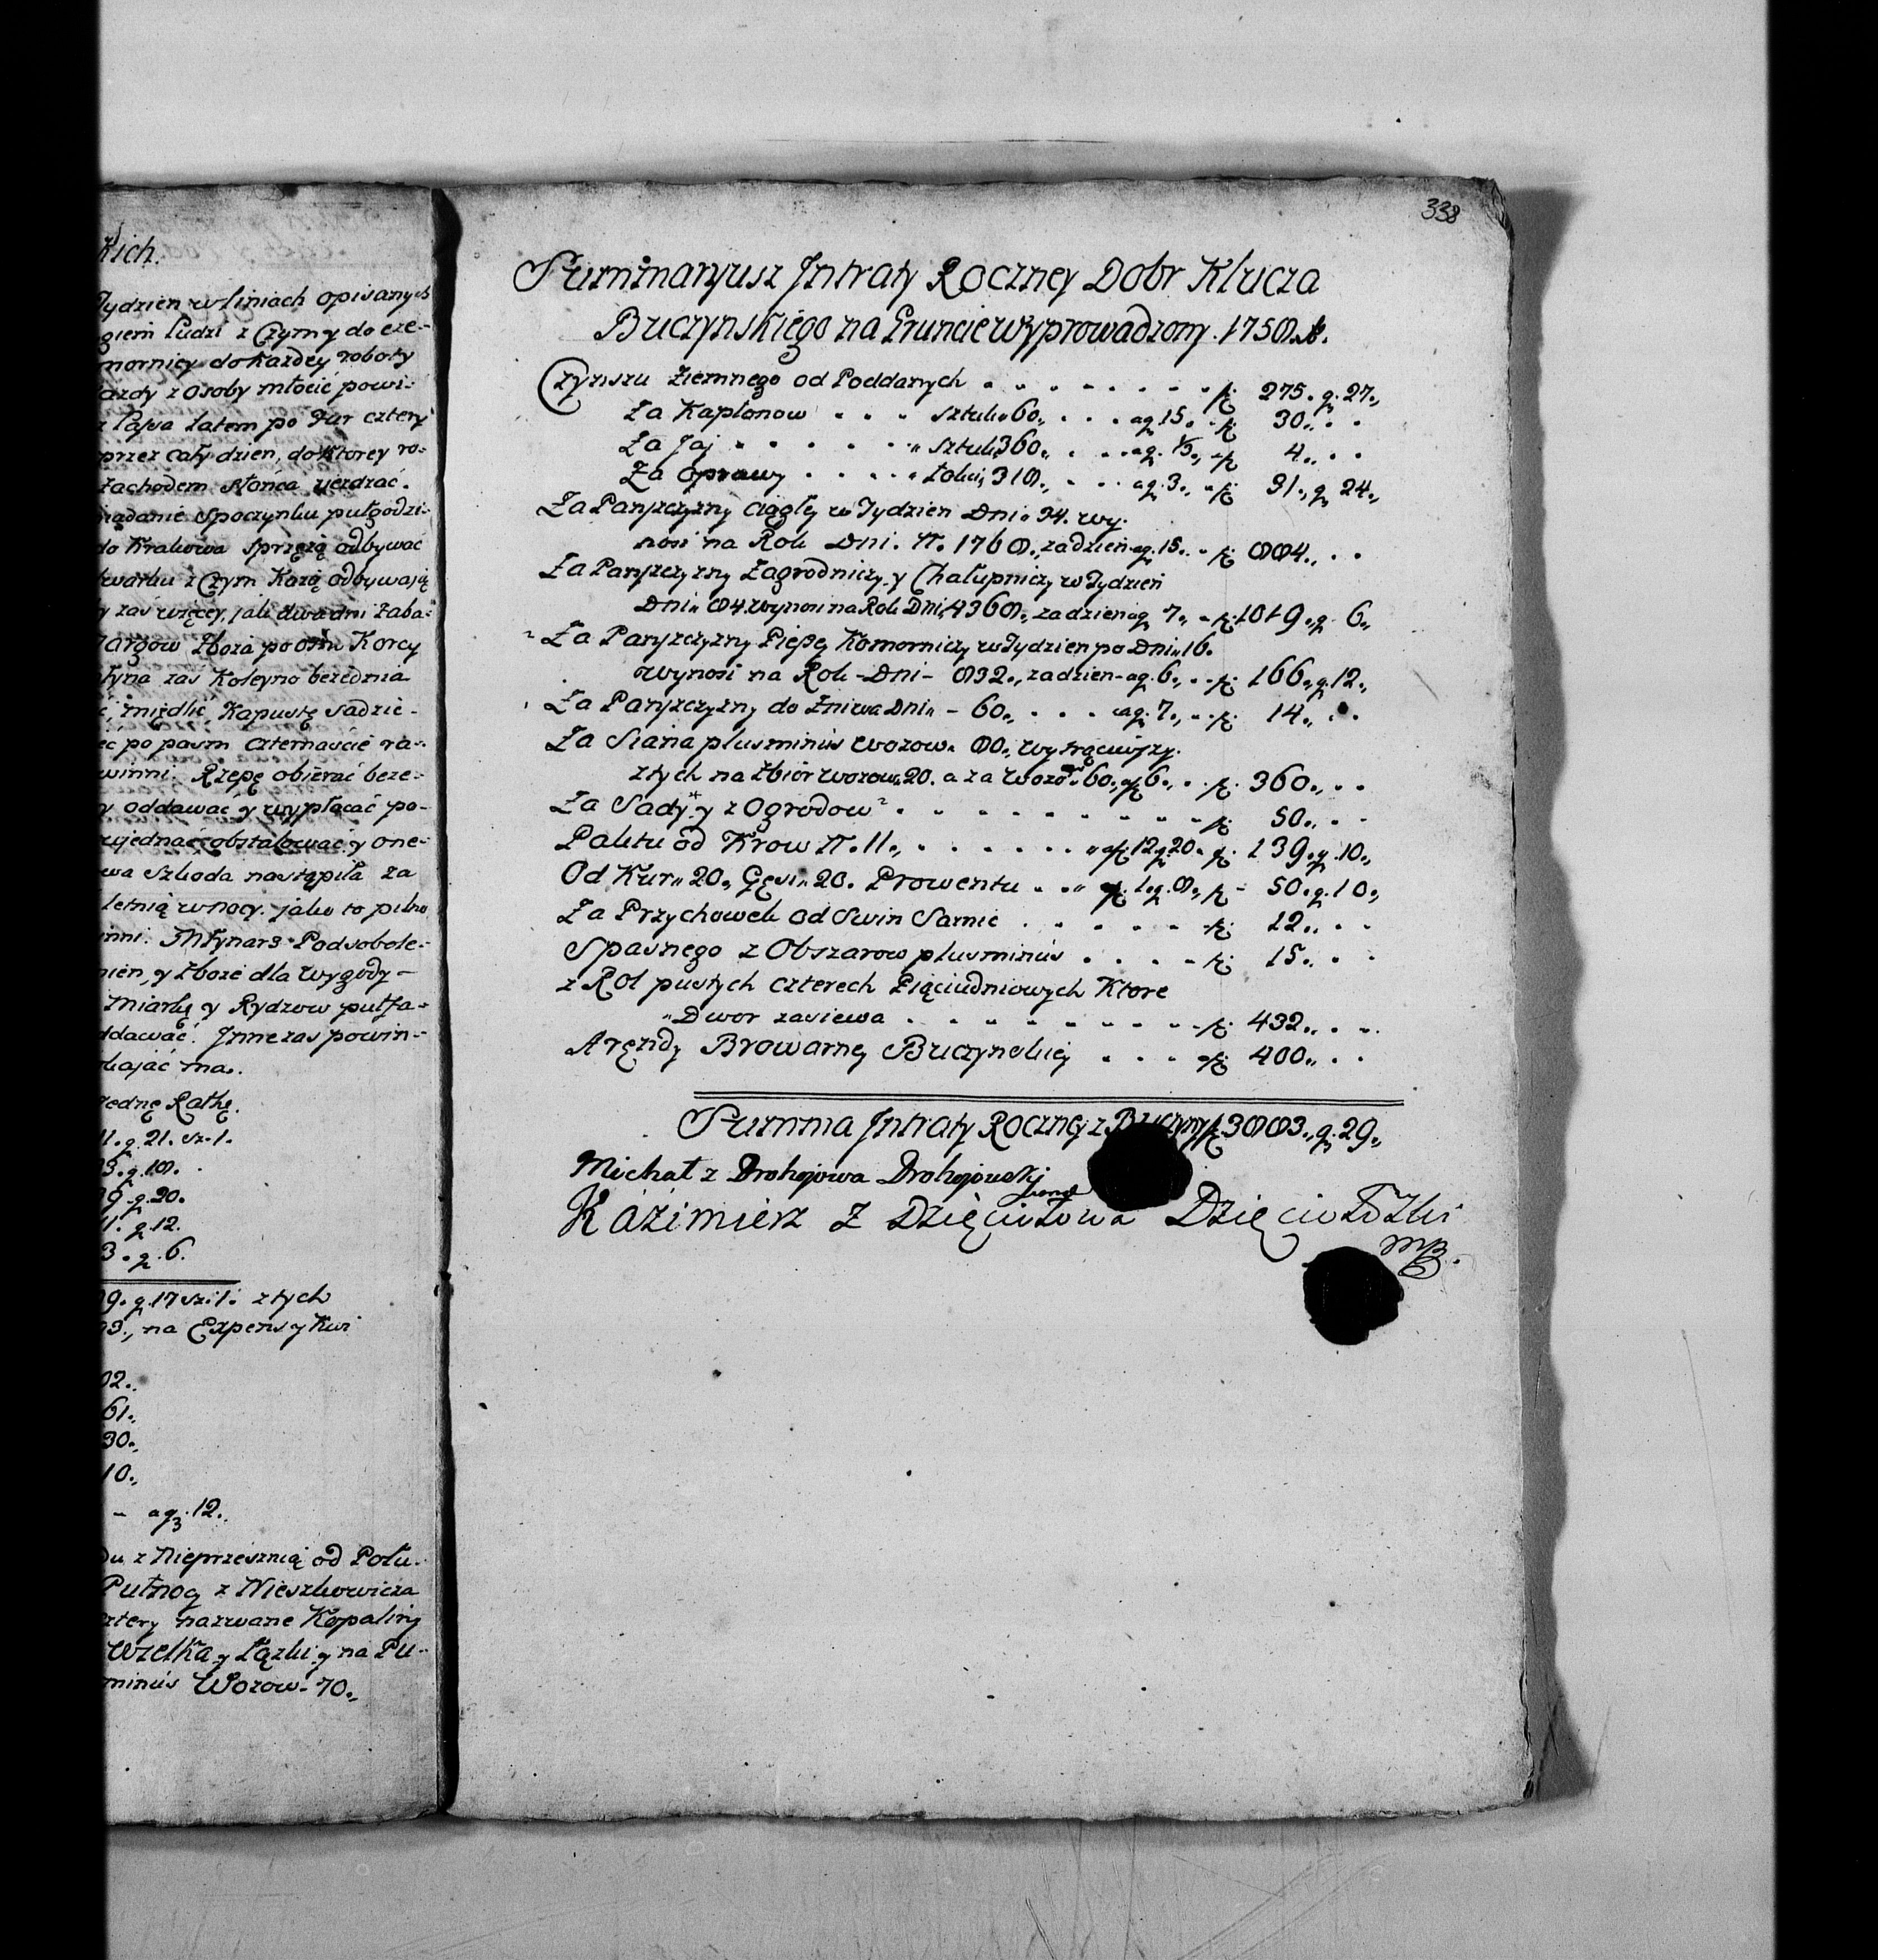 338
kich.
Tydzien w liniach opisanych
giem ludzi z Czymy do cze-
mornicy do Każdey roboty
ażdy z Osoby młocić powi-
z Pasa latem po Fur cztery
przez cały dzien, do Ktorey ro-
Zachodem Słońca zjezdzać.
iadanie Spoczynku pułgodzi-
do Krakowa Sprzężą odbywać
kwarku z Czym Każą odbywają
y zaś więcey, jak dwa dni Zaba-
Targow Zboża po ośm Korcy
łyna zaś Koleyno bezednia
ć, międlić, Kapustę Sadzić-
eć po pasm czternaście ra-
winni. Rzepę obierać beze-
y oddawać y wypłacać po-
zjednać obstalować y one-
wa Szkoda nastąpiła za
letnią w nocy. jako to pilno
inni. Młynarz Podsobole-
ien, y Zboże dla wygody-
Miarkę y Rydzow pułfa-
ddawać. Inne zas powin-
kająć ma.
jednę Ratkę.
11. g. 21. sz. 1.
3. g. 18.
9. g. 20.
11. g. 12.
3. g. 6.
9. g. 17 sz. 1. z tych
93., na Expensy Kwi
02.
61.,
30.,
10.,
- a g. 12.
du z Nieprześnią od Połu-
Pułnocy z Wieszkowicza
cztery nazwane Kopaliny
Wzelka y Łązki y na Pu-
minus Wozow - 70.,
Summaryusz Intraty Roczney Dobr Klucza
Buczynskiego na Gruncie wyprowadzony. 1758. A.
Czynszu Ziemnego od Poddanych . . . zł. 275. g. 27.,
Za Kapłonow . . . Sztuk 60., . . . a g. 15. zł. 30., . .
Za Jaj . . . Sztuk 360., . . . a g. 1/3., zł. 4., . .
Za Oprawy . . . Łokci, 318., . . . a g. 3., zł. 31., g. 24.,
Za Panszczyzny Ciągłey w Tydzien Dni. 34. wy-
nosi na Rok Dni. N. 1768., za dzien a g. 15., zł. 884., . .
Za Panszczyzny Zagrodniczy y Chałupniczy w Tydzien
Dni 84. wynosi na Rok Dni, 4368., za dzien a g. 7., zł. 1019., g. 6.,
Za Panszczyzny Pieszę Komorniczy w Tydzien po Dni 16.
wynosi na Rok - Dni - 832., za dzien - a g. 6., zł. 166., g. 12.,
Za Panszczyzny do Zniwa Dni - 60., . . . a g. 7., zł. 14., .
Za Siana plusminus wozow. 80., wytrąciwszy
z tych na Zbiór wozow. 20. a za wozow 60. a zł. 6., zł. 360., . .
Za Sady y z Ogrodow . . . zł. 50., . .
Paktu od Krow N. 11., . . . a zł. 12 g. 20 zł. 139., g. 10.,
Od Kur 20, Gęsi 20. Prowentu . . a zł. 1. g. 8., zł. 50., g. 10.,
Za Przychowek od Swin Samic . . . zł. 12., . .
Spasnego z Obszarow plusminus . . . zł. 15., . .
z Rol pustych czterech Pięciudniowych Ktore
Dwor zasiewa . . . zł. 432., . .
Arędy Browarney Buczynskiey . . . zł. 400., . .
Summa Intraty Roczney z Buczyny zł. 3883., g. 29.,
Michał z Drohojowa Drohojowski
Kaźimierz z Dzięciołowa Dzięciołoski
mp.